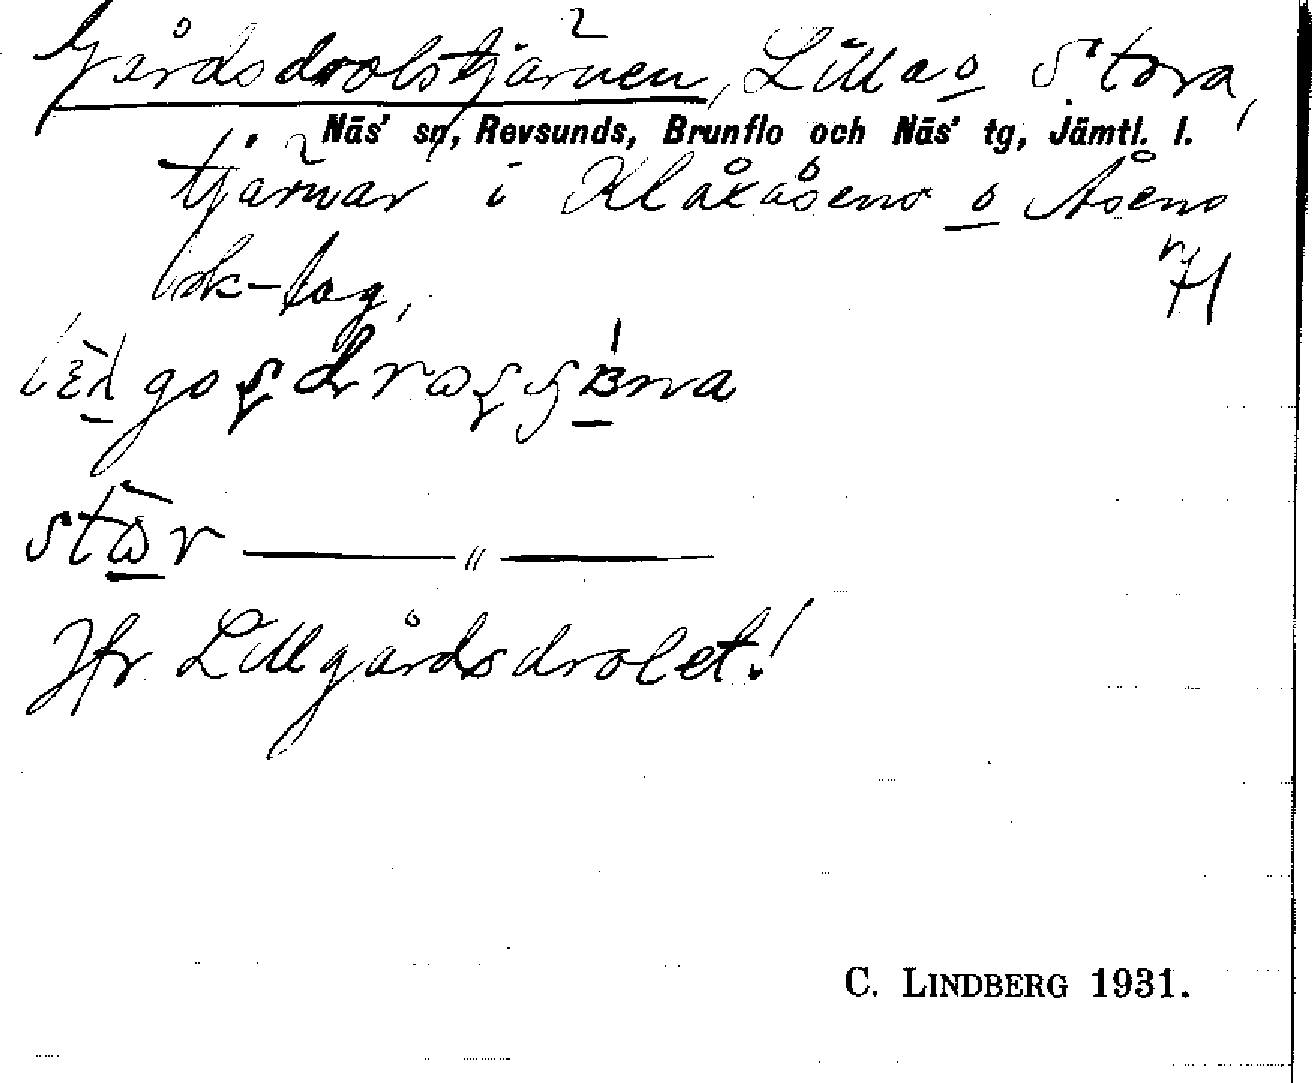 Gårdsdrolstjärnen, Lilla o Stora,
Näs' sn, Revsunds, Brunflo och Näs' tg, Jämtl. l.
tjärnar i Kläxåsens o Åsens
sk-lag,
H
stωr ——— " ———
Jfr Lillgårdsdrolet!
C. LINDBERG 1931.